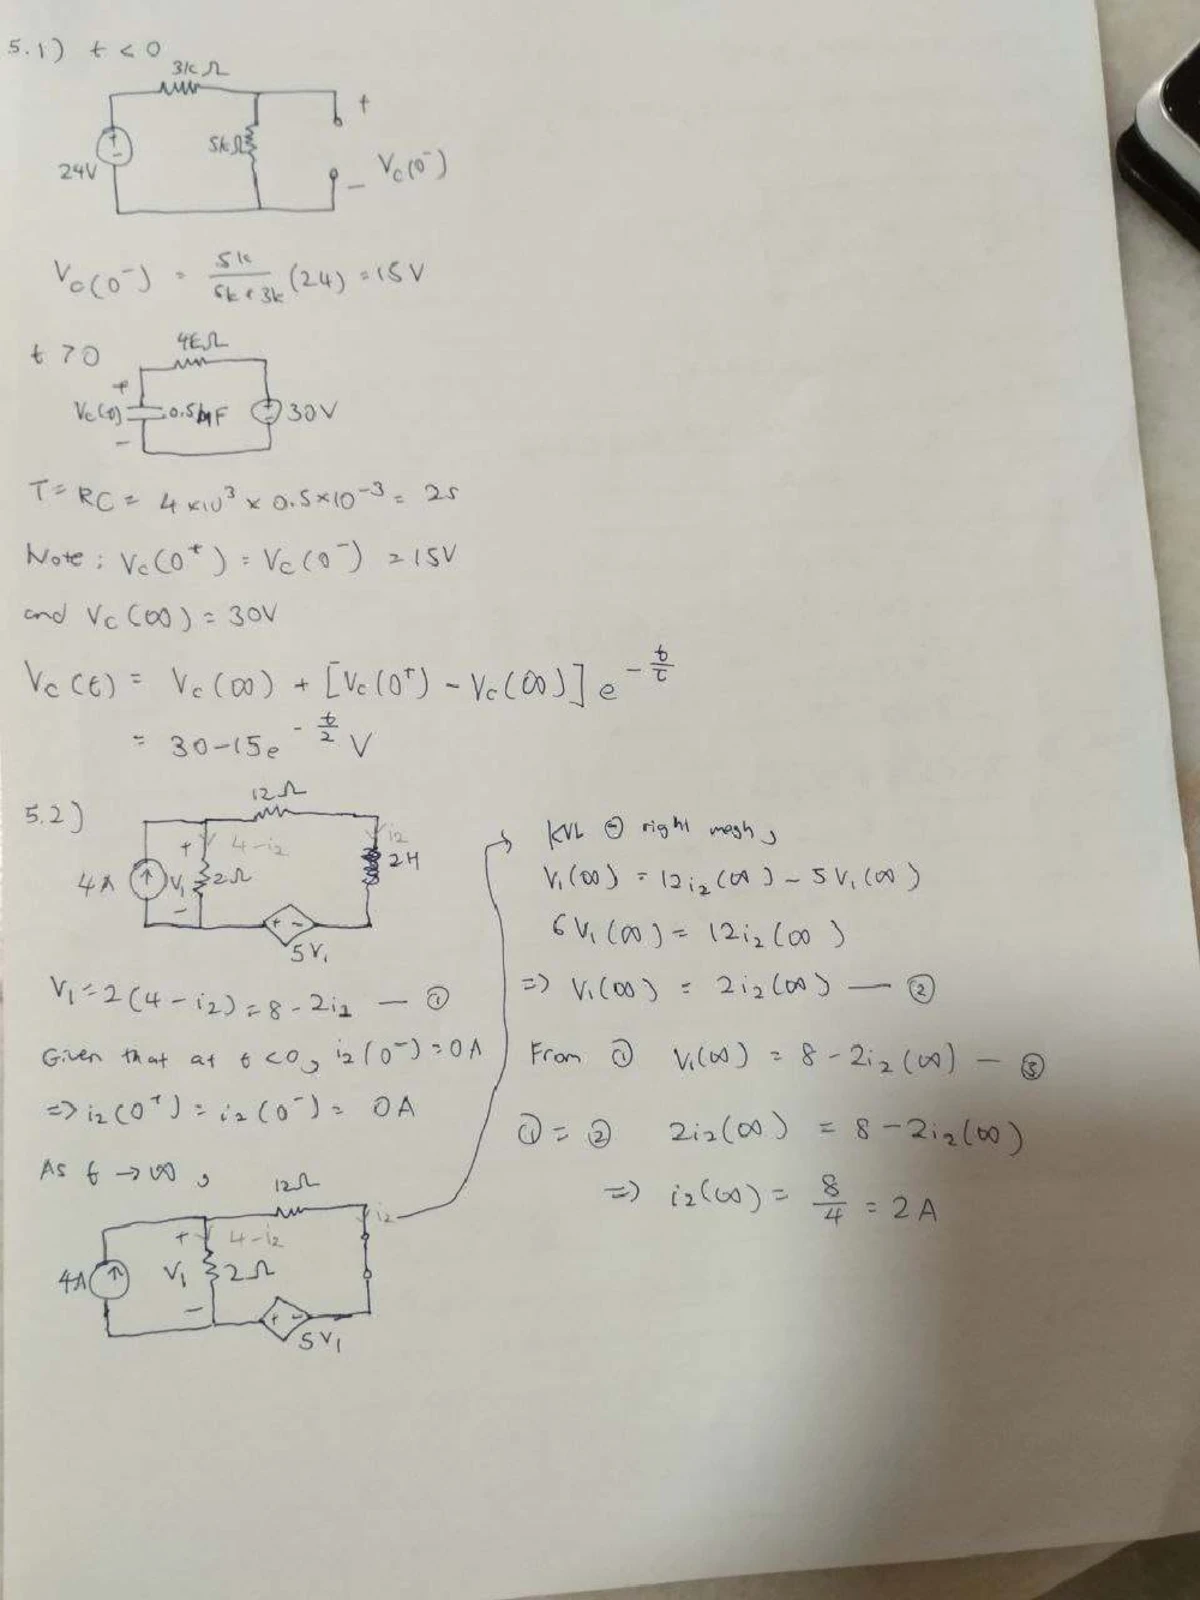 5.1) t < 0
3kΩ
+
5kΩ
24V
Vc(0⁻)
−
Vc(0⁻) = 5k / 5k + 3k (24) = 15V
t > 0
4kΩ
+
Vc(0) 0.5mF 30V
−
τ = RC = 4×10³ × 0.5×10⁻³ = 2s
Note: Vc(0⁺) = Vc(0⁻) = 15V
and Vc(∞) = 30V
Vc(t) = Vc(∞) + [Vc(0⁺) − Vc(∞)] e^(−t/τ)
= 30 − 15e^(−t/2) V
5.2)
12Ω
+ 4−i₂ i₂
4A V₁ 2Ω 2H
−
+ −
5V₁
V₁ = 2(4−i₂) = 8−2i₂ — ①
Given that at t<0, i₂(0⁻) = 0A
=> i₂(0⁺) = i₂(0⁻) = 0A
As t → ∞,
12Ω
+ 4−i₂ i₂
4A V₁ 2Ω
−
+ −
5V₁
KVL right mesh,
V₁(∞) = 12i₂(∞) − 5V₁(∞)
6V₁(∞) = 12i₂(∞)
=> V₁(∞) = 2i₂(∞) — ②
From ① V₁(∞) = 8 − 2i₂(∞) — ③
① = ② 2i₂(∞) = 8 − 2i₂(∞)
=> i₂(∞) = 8/4 = 2A